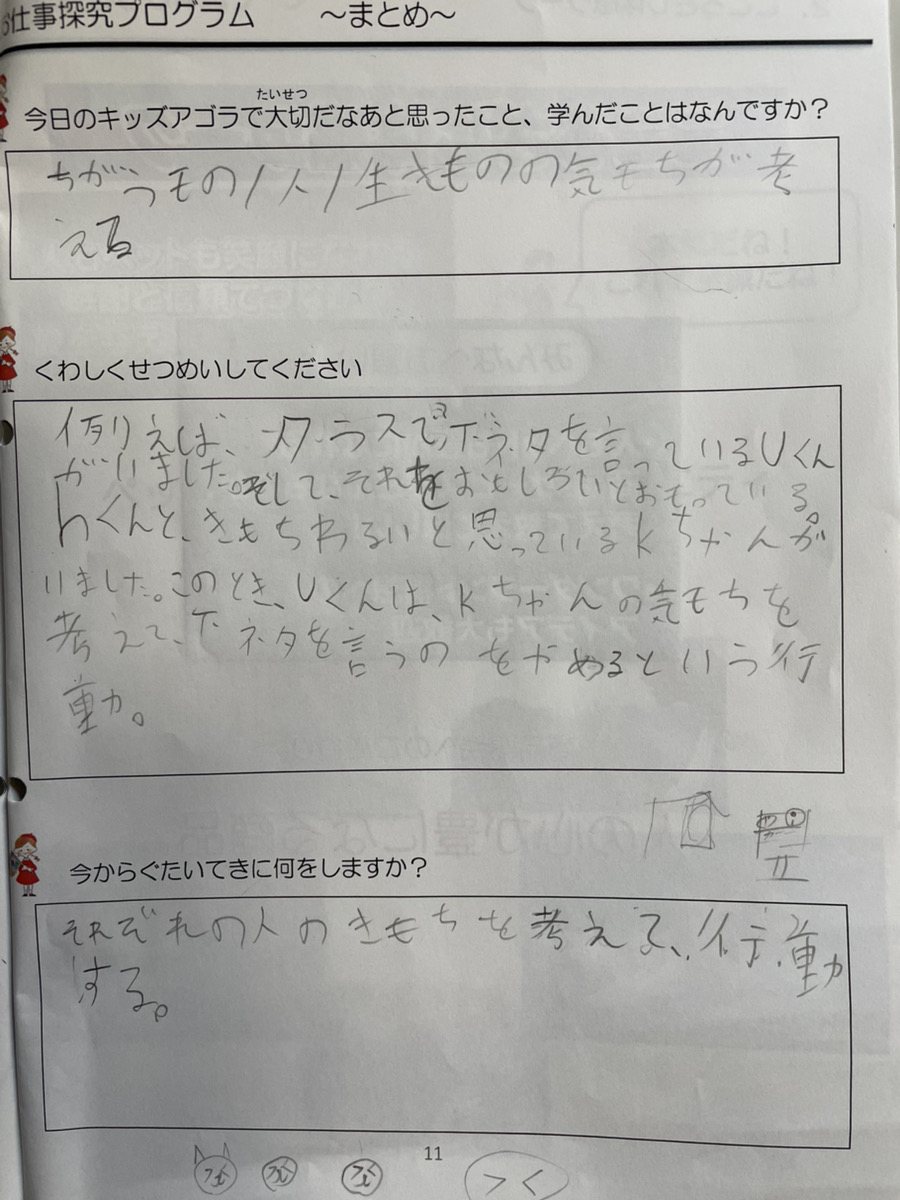 お仕事探究プログラム　～まとめ～
たいせつ
今日のキッズアゴラで大切だなあと思ったこと、学んだことはなんですか？
ちがうもの/人/生きものの気もちが考
える
くわしくせつめいしてください
例りえば、クラスで、下ネタを言っているUくん
がいました。そして、それをおもしろいとおもっている。
hくんと、きもちわるいと思っているKちゃんが
いました。このとき、Uくんは、Kちゃんの気もちを
考えて、下ネタを言うのをやめるという行
動。
今からぐたいてきに何をしますか？
それぞれの人のきもちを考えて、行動
する。
11